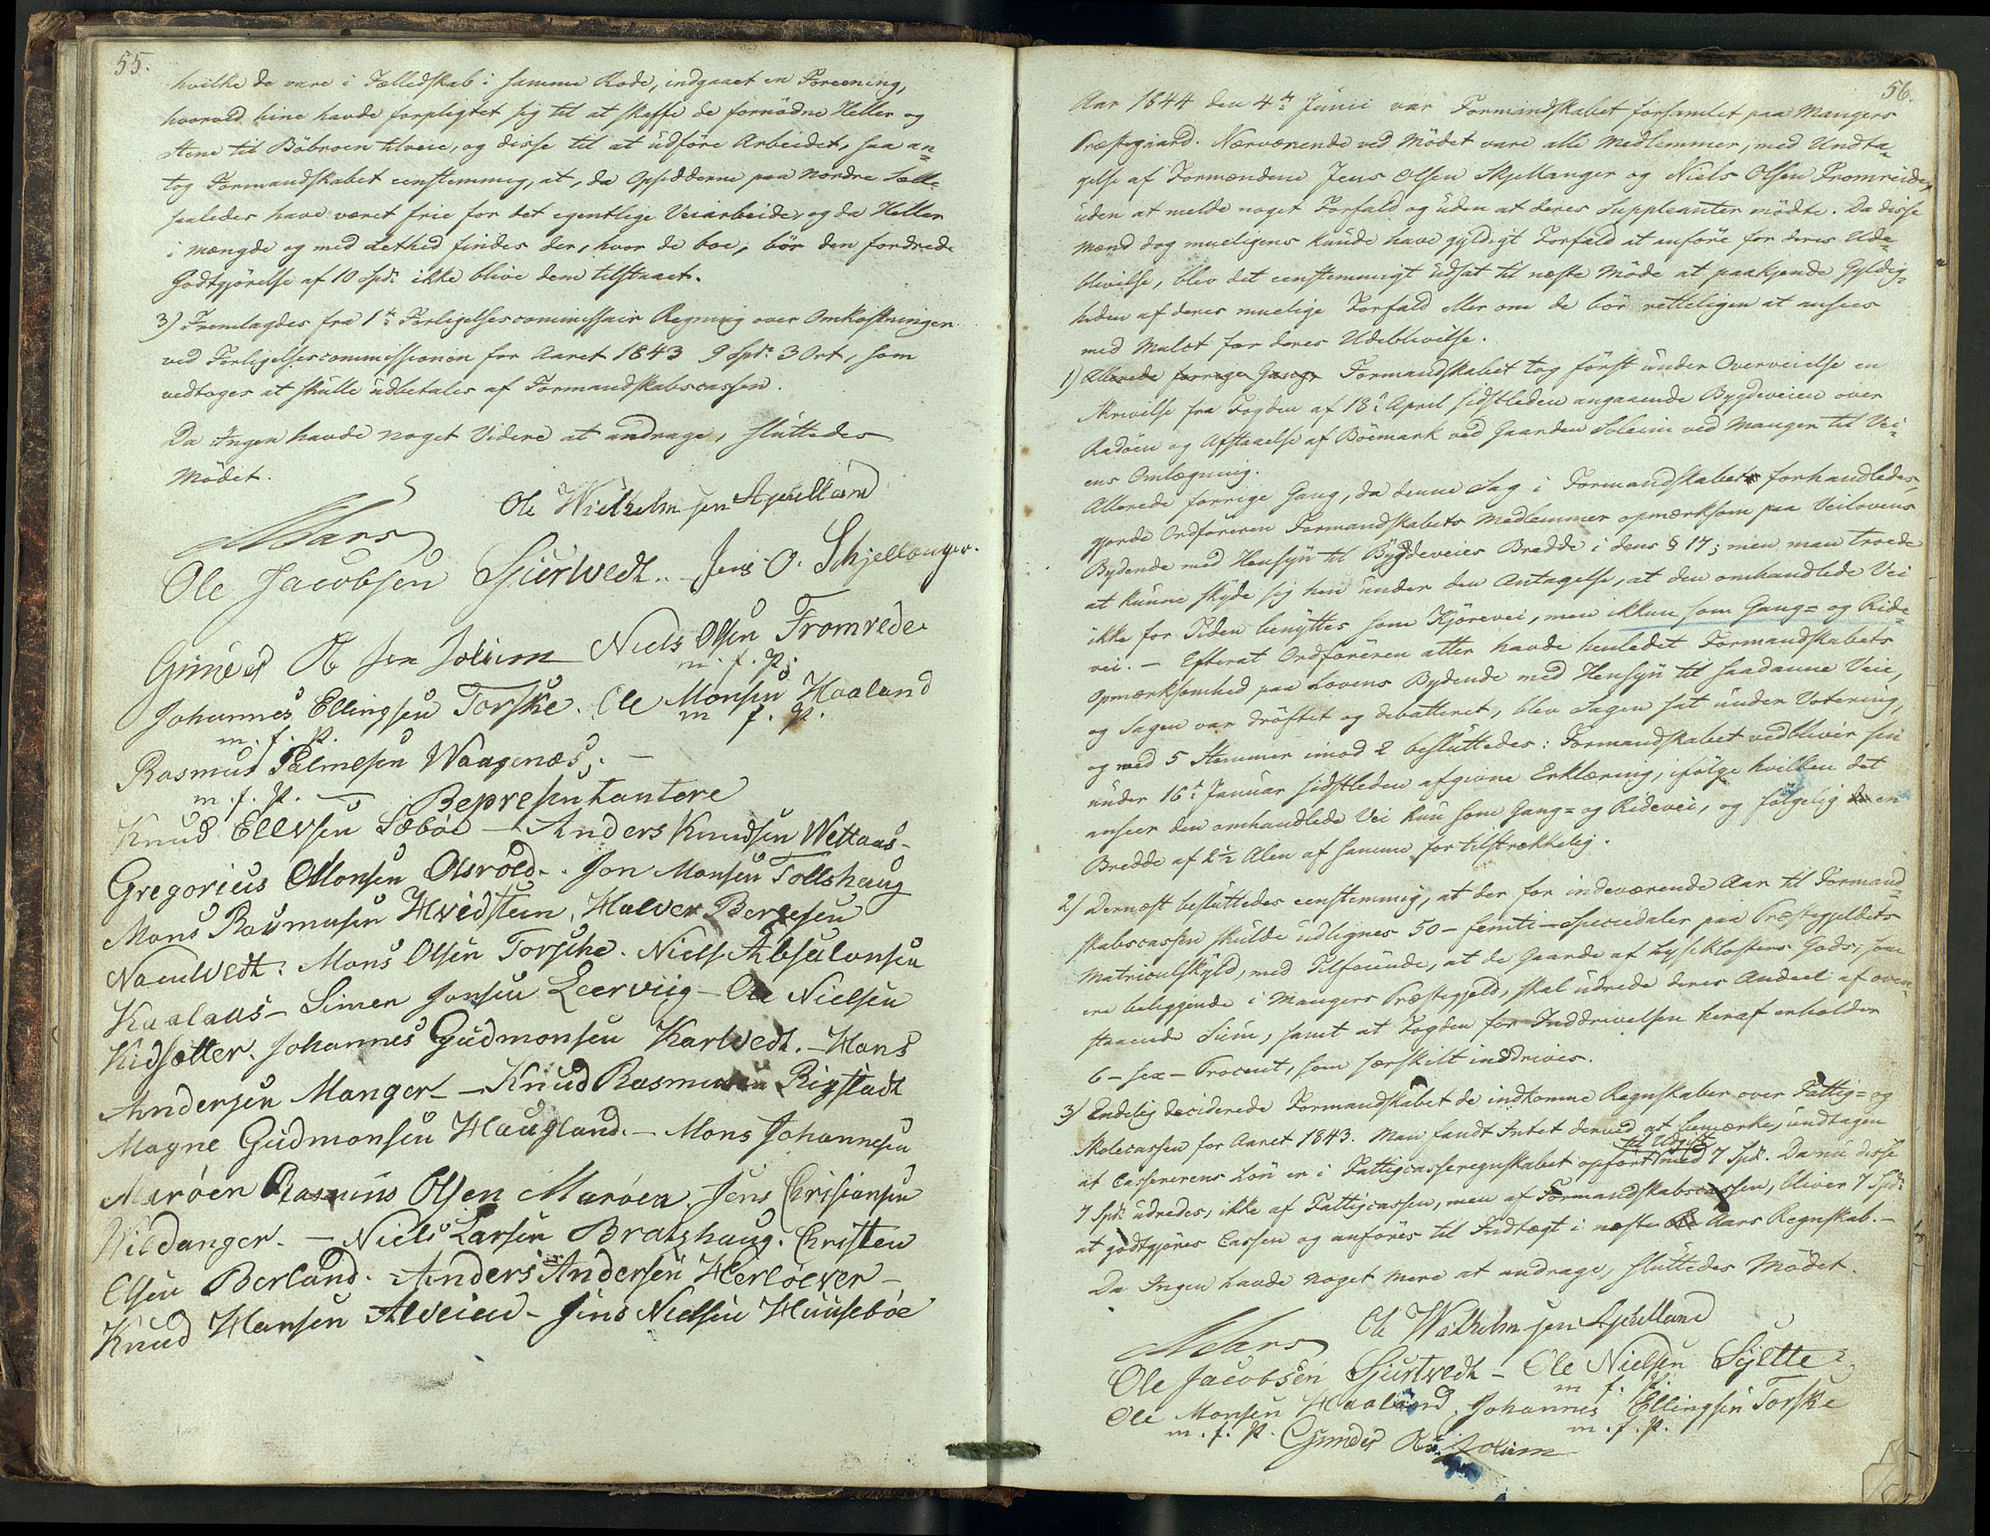 55.
hvilke de vare i Fælledskab i samme Rode, indgaaet en Forening,
hvorved hine havde forpligtet sig til at skaffe de fornødne Heller og
Stene til Böbroen tilveie, og disse til at udføre Arbeidet, saa an-
tog Formandskabet eenstemmig, at, da Opsidderne paa Nordre
saaledes have været frie for det egentlige Veiarbeide, og da Heller
i Mængde og med Lethed findes der, hvor de boe, bör den fordrede
Godtgjörelse af 10 Spd. ikke blive dem tilstaaet.
3) Fremlagdes fra 1ste Forligelsescommissair Regning over Omkostningen
ved Forligelsescommissionen for Aaret 1843 9 Spd. 3 Ort, som
vedtoges at skulle udbetales af Formandskabscassen.
Da Ingen havde noget Videre at andrage, sluttedes
Mödet.
Ole Wilhelmsen
Ole Jacobsen Sjurtvedt. - Jens O. Schjellanger.
Olsen Soliem Niels Olsen Fromrede
m. f. P.
Johannes Ellingsen Torske. Ole Monsen Haaland
m. f. P. m. f. P.
Rasmus Palmesen Waagenæs. -
m. f. P. - Repræsentantere
Knud Ellevsen Sæböe - Anders Knudsen Wettaas -
Gregorius Monsen Olsvold. - Jon Monsen Tollshaug
Mons Rasmusen Hvidsteen, Halver Bergesen
Namtvedt. Mons Olsen Torsche. Niels Absalonsen
Kaalaas - Simen Jonsen Leervüg - Ole Nielsen
Kidsætter. Johannes Gudmonsen Kartvedt. - Hans
Andersen Manger - Knud Rasmusen Rigstadt
Magne Gudmonsen Haugland. - Mons Johannesen
Maröen Rasmus Olsen Maröen. Jens Christiansen
Wildanger. - Niels Larsen Bratshaug. Christen
Olsen Berland. Anders Andersen Herlöever -
Knud Hansen Alveien - Jens Nielsen Huuseböe
56.
Aar 1844 den 4de Junii var Formandskabet forsamlet paa Mangers
Præstegaard. Nærværende ved Mödet vare alle Medlemmer, med Undta-
gelse af Formændene Jens Olsen Skjellanger og Niels Olsen Fromreide,
uden at melde noget Forfald og uden at deres Suppleanter mödte. Da disse
Mænd dog mueligens kunde have gyldigt Forfald at anföre for deres Ude-
blivelse, blev det eenstemmigt udsat til næste Möde at paakjende Gyldig-
heden af deres muelige Forfald eller om de bör retteligen at ansees
med Mulct for deres Udeblivelse.
1) Allerede forrige Gang, Formandskabet tog först under Overveielse en
Skrivelse fra Fogden af 18de April sidstleden angaaende Bygdeveien over
Radöen og Afstaaelse af Böemark ved Gaarden Soleim ved Manger til Vei-
ens Omlægning.
Allerede forrige Gang, da denne Sag i Formandskabet forhandledes,
gjorde Ordföreren Formandskabets Medlemmer opmærksom paa Veilovens
Bydende med Hensyn til Bygdeveies Bredde i dens § 17; men man troede
at kunne skyde sig hen under den Antagelse, at den omhandlede Vei
ikke for Tiden benyttes som Kjörevei, men ikkun som Gang- og Ride-
vei. - Efterat Ordföreren atter havde henledet Formandskabets
Opmærksomhed paa Lovens Bydende med Hensyn til saadanne Veie,
og Sagen var dröftet og debatteret, blev Sagen sat under Votering,
og med 5 Stemmer imod 2 besluttedes: Formandskabet vedbliver sin
under 16de Januar sidstleden afgivne Erklæring, ifölge hvilken det
anseer den omhandlede Vei kun som Gang- og Ridevei, og fölgelig en
Bredde af 2½ Alen af samme for tilstrækkelig.
2) Dernæst besluttedes eenstemmig, at der for indeværende Aar til Formand-
skabscassen skulde udlignes 50 - femti - Speciedaler paa Præstegjeldets
Matriculskyld, med Tilföiende, at de Gaarde af Lyseklosters Gods, som
ere beliggende i Mangers Præstegjeld, skal udrede deres Andeel af oven-
staaende Sum, samt at Fogden for Inddrivelsen heraf erholder
6 - sex - Procent, som særskilt inddrives.
3) Endelig deciderede Formandskabet de indkomne Regnskaber over Fattig- og
Skolecassen for Aaret 1843. Man fandt Intet derved at bemærke, undtagen
at Cassererens Lön er i Fattigcasseregnskabet opfört til Udgift med 7 Spd. Da nu disse
7 Spd. udredes, ikke af Fattigcassen, men af Formandskabscassen, bliver 7 Spd.
at godtgjöres Cassen og anföres til Indtægt i næste Aars Regnskab. -
Da Ingen havde noget mere at andrage, sluttedes Mödet.
Ole Wilhelmsen
Ole Jacobsen Sjurtvedt - Ole Nielsen Sylte
m. f. P.
Ole Monsen Haaland. Johannes Ellingsen Torske
m. f. P. m. f. P.
Soliem